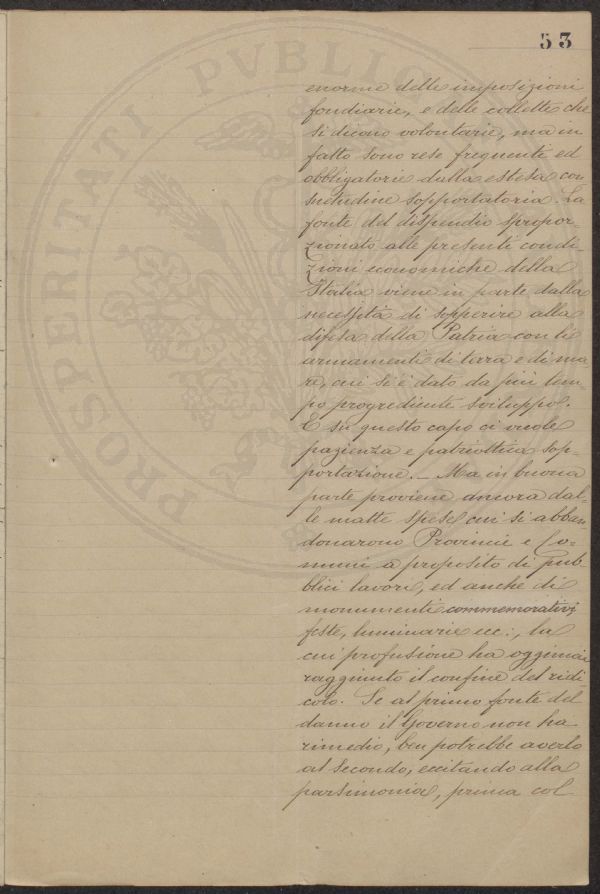 53
PROSPERITATI PVBLIC
enorme delle imposizioni
fondiarie, e delle collette che
si dicono volontarie, ma in
fatto sono rese frequenti ed
obbligatorie dalla estesa con
suetudine sopportatoria. La
fonte del dispendio spropor-
zionato alle presenti condi-
zioni economiche della
Italia viene in parte dalla
necessità di sopperire alla
difesa della Patria con li
armamenti di terra e di ma
re, cui si è dato da più tem-
po progrediente sviluppo.
E su questo capo ci vuole
pazienza e patriottica sop-
portazione. _ Ma in buona
parte proviene ancora dal-
le matte spese cui si abban
donarono Provincie e Co-
muni a proposito di pub-
blici lavori, ed anche di
monumenti commemorativi
feste, luminarie ecc:, la
cui profusione ha oggimai
raggiunto il confine del ridi
colo. Se al primo fonte del
danno il Governo non ha
rimedio, ben potrebbe averlo
al secondo, eccitando alla
parsimonia, prima col